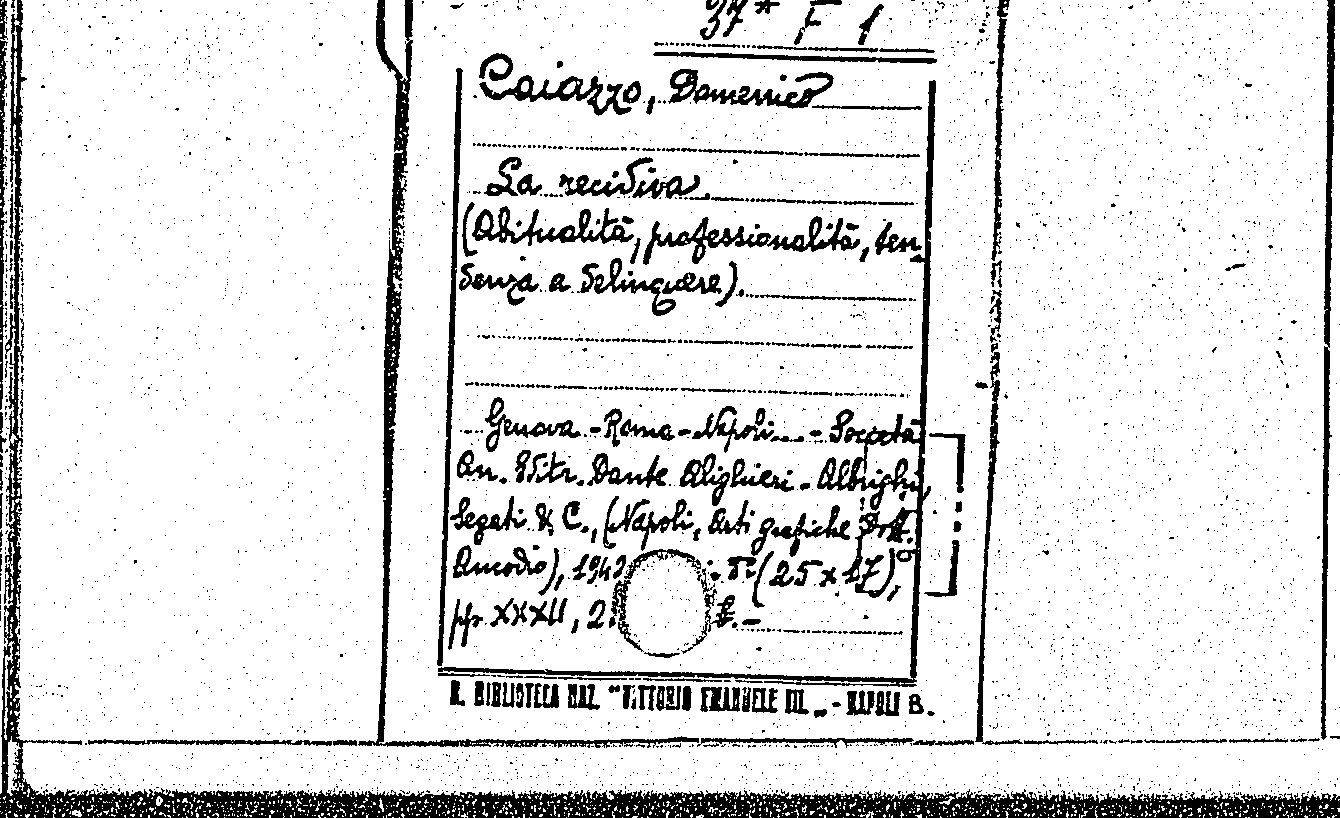 37* F 1
Caiazzo, Domenico
La recidiva.
(Abitualità, professionalità, ten-
denza a delinquere).
Genova - Roma - Napoli... - Società
An. Editr. Dante Alighieri - Albrighi,
Segati & C., (Napoli, Arti grafiche Dott.
Amodio), 1942 (25 x 17),
pp. XXXII,
R. BIBLIOTECA NAZ. "VITTORIO EMANUELE III." - NAPOLI B.